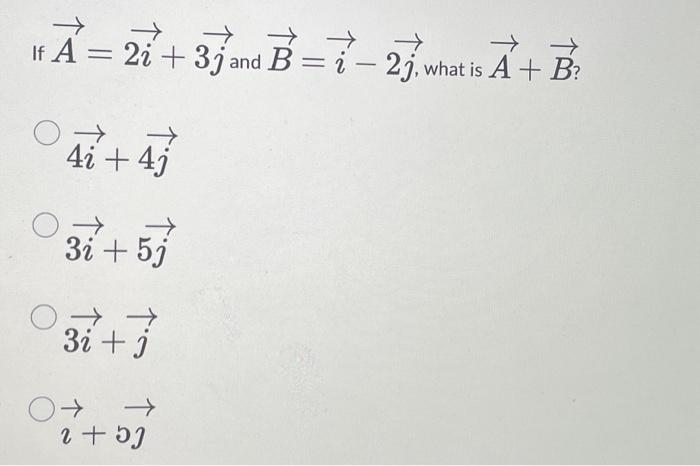 If A⃗ = 2i⃗ + 3j⃗ and B⃗ = i⃗ − 2j⃗, what is A⃗ + B⃗?
4i⃗ + 4j⃗
3i⃗ + 5j⃗
3i⃗ + j⃗
i⃗ + 5j⃗